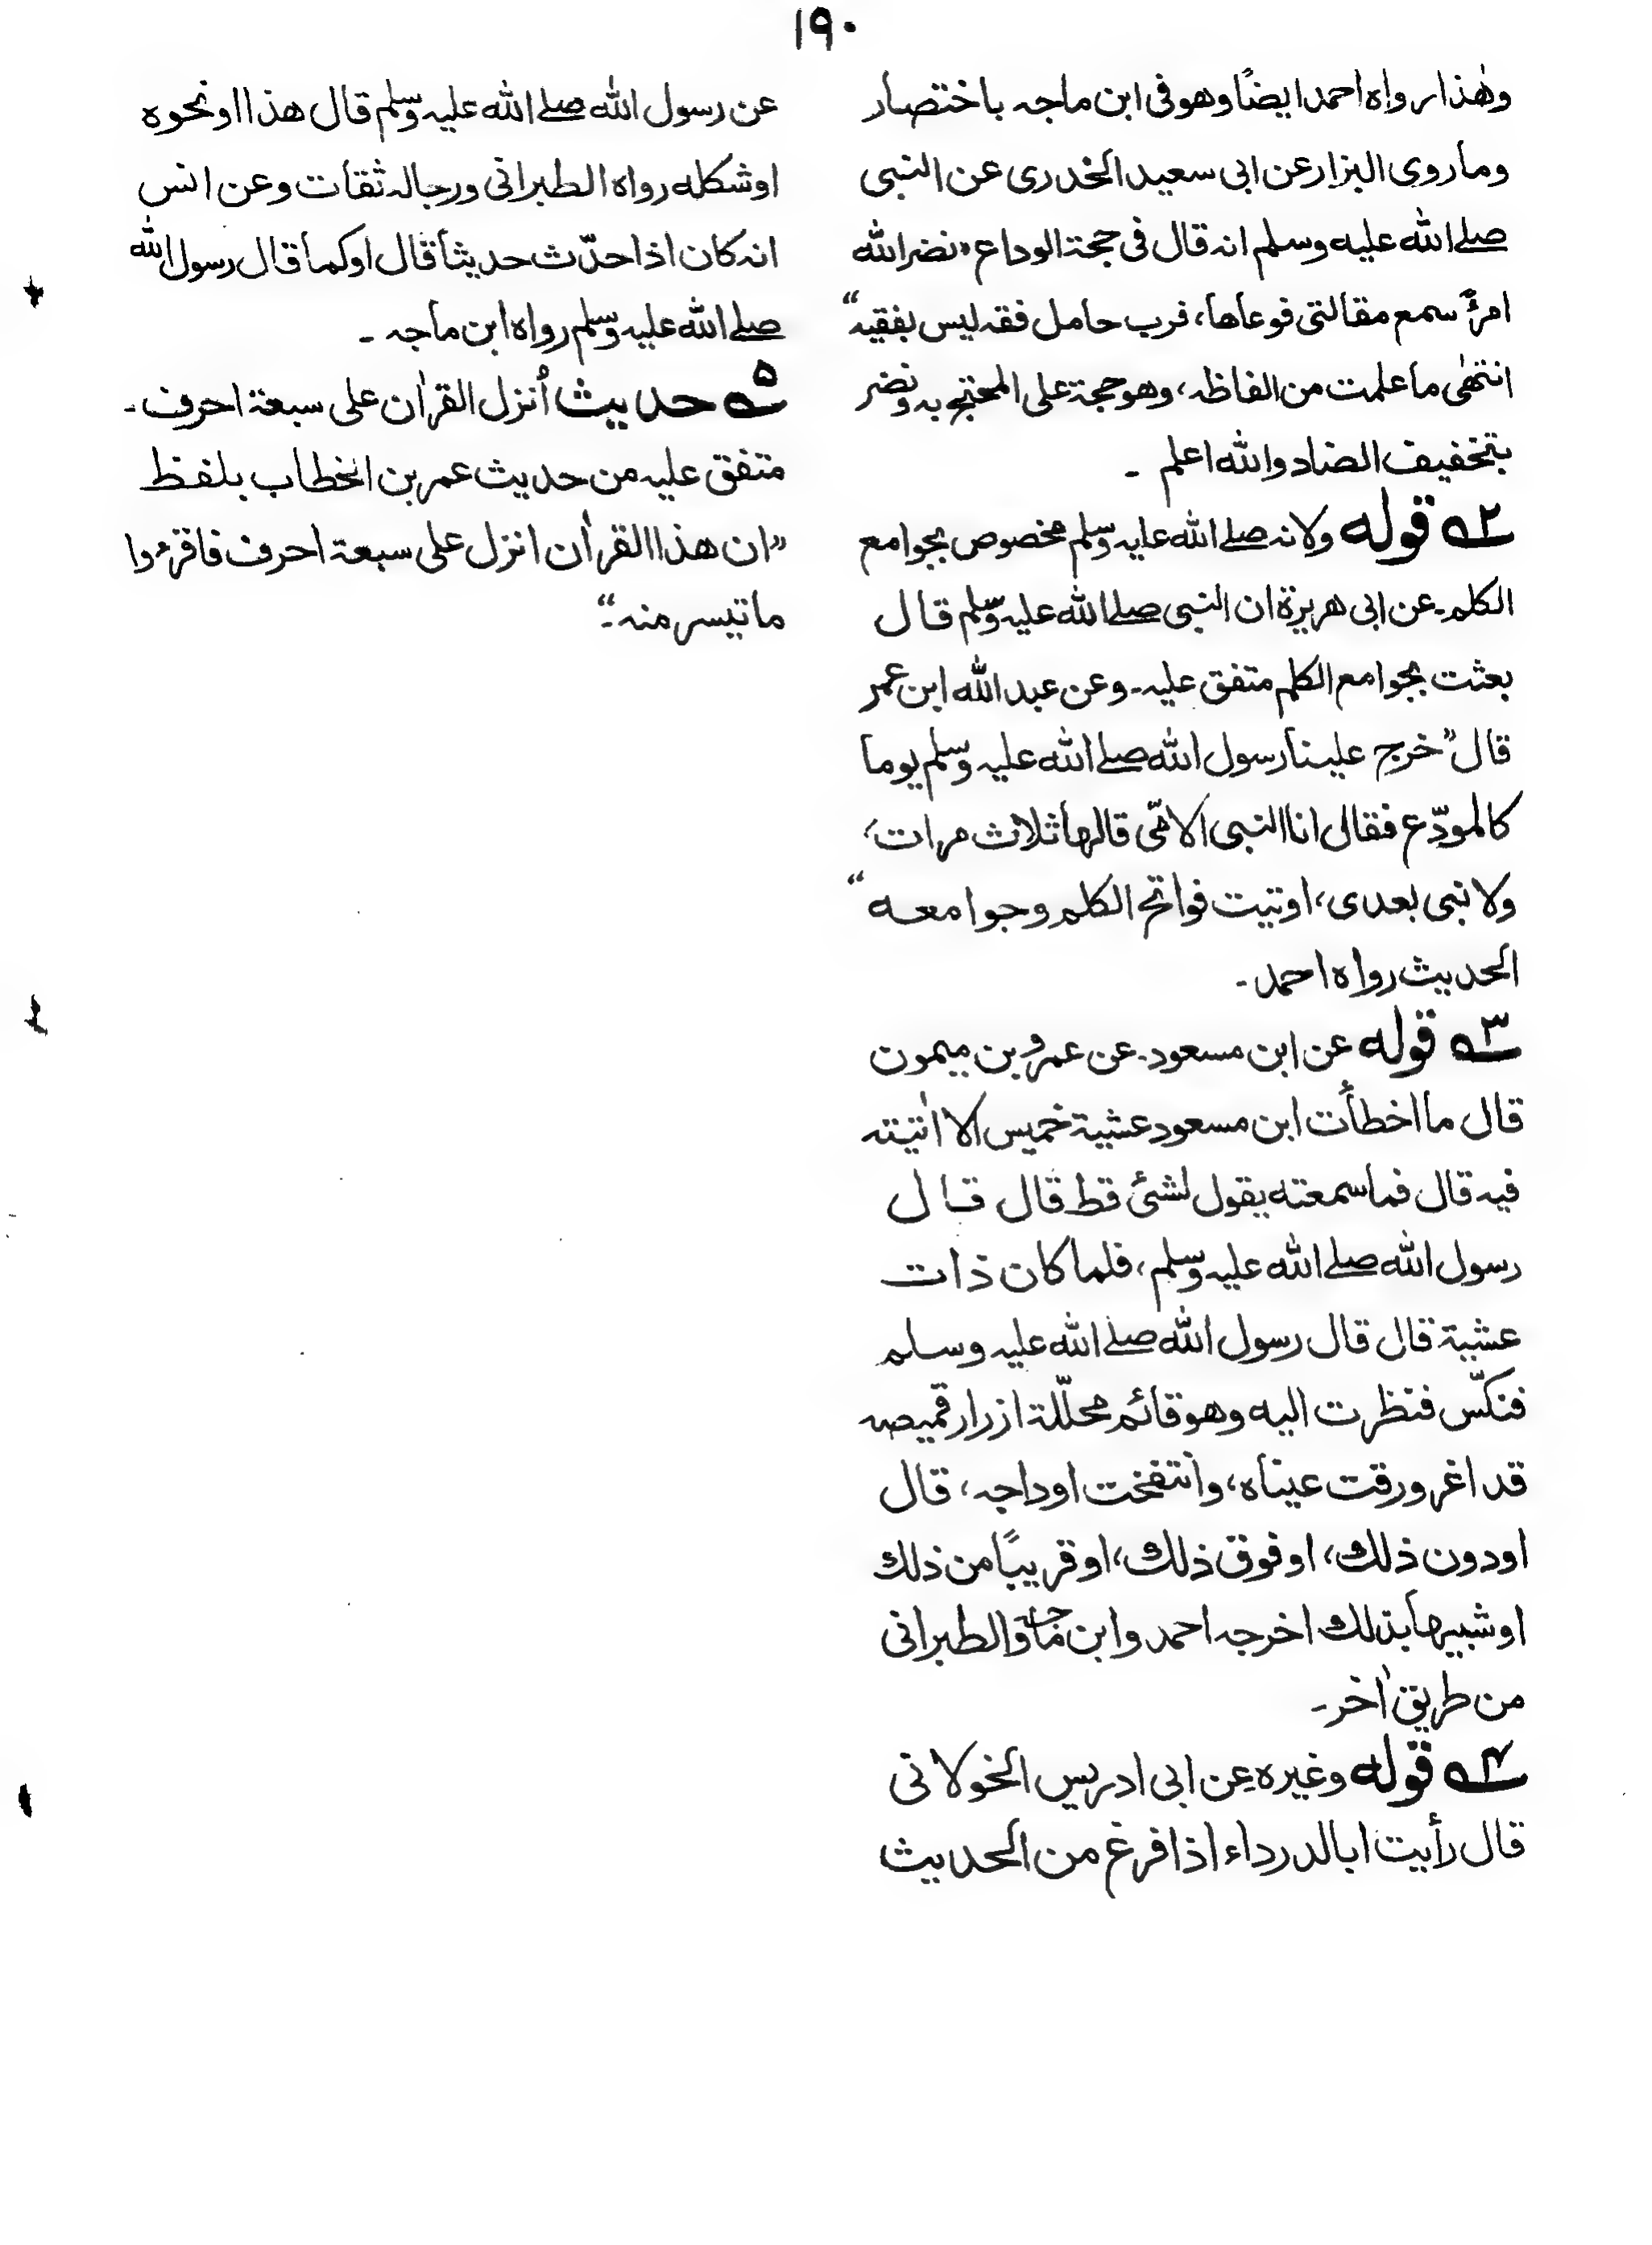 ١٩٠
وهٰذا رواه احمد ايضًا وهو فى ابن ماجه باختصار
وما روى البزار عن ابى سعيد الخدرى عن النبى
صلے الله عليه وسلم انه قال فى حجة الوداع "نضر الله
امرءً سمع مقالتى فوعاها، فرب حامل فقه ليس بفقيه"
انتهٰى ما علمت من الفاظه، وهو حجة على المحتج به ونضر
بتخفيف الضاد والله اعلم ۔
٢ے قوله ولانه صلے الله عليه وسلم مخصوص بجوامع
الكلم۔ عن ابى هريرة ان النبى صلے الله عليه وسلم قال
بعثت بجوامع الكلم متفق عليه۔ وعن عبد الله ابن عمر
قال "خرج علينا رسول الله صلے الله عليه وسلم يوما
كالمودّع فقال انا النبى الامّى قالها ثلاث مرات،
ولا نبى بعدى، اوتيت فواتح الكلم وجوامعه"
الحديث رواه احمد۔
٣ے قوله عن ابن مسعود۔ عن عمرو بن ميمون
قال ما اخطأت ابن مسعود عشية خميس الا اٰتيته
فيه قال فما سمعته يقول لشئ قط قال قال
رسول الله صلے الله عليه وسلم، فلما كان ذات
عشية قال قال رسول الله صلے الله عليه وسلم
فنكّس فنظرت اليه وهو قائم محلّلة ازرار قميصه
قد اغرورقت عيناه، وانتفخت اوداجه، قال
او دون ذلك، او فوق ذلك، او قريبًا من ذلك
او شبيها بذلك اخرجه احمد وابن ماجه والطبرانى
من طريق اٰخر۔
٤ے قوله وغيره عن ابى ادريس الخولانى
قال رأيت ابا الدرداء اذا فرغ من الحديث
عن رسول الله صلے الله عليه وسلم قال هذا او نحوه
او شكله رواه الطبرانى ورجاله ثقات وعن انس
انه كان اذا حدّث حديثا قال او كما قال رسول الله
صلے الله عليه وسلم رواه ابن ماجه ۔
۵ے حديث اُنزل القراٰن على سبعة احرف۔
متفق عليه من حديث عمر بن الخطاب بلفظ
"ان هذا القراٰن انزل على سبعة احرف فاقرءوا
ما تيسر منه۔"